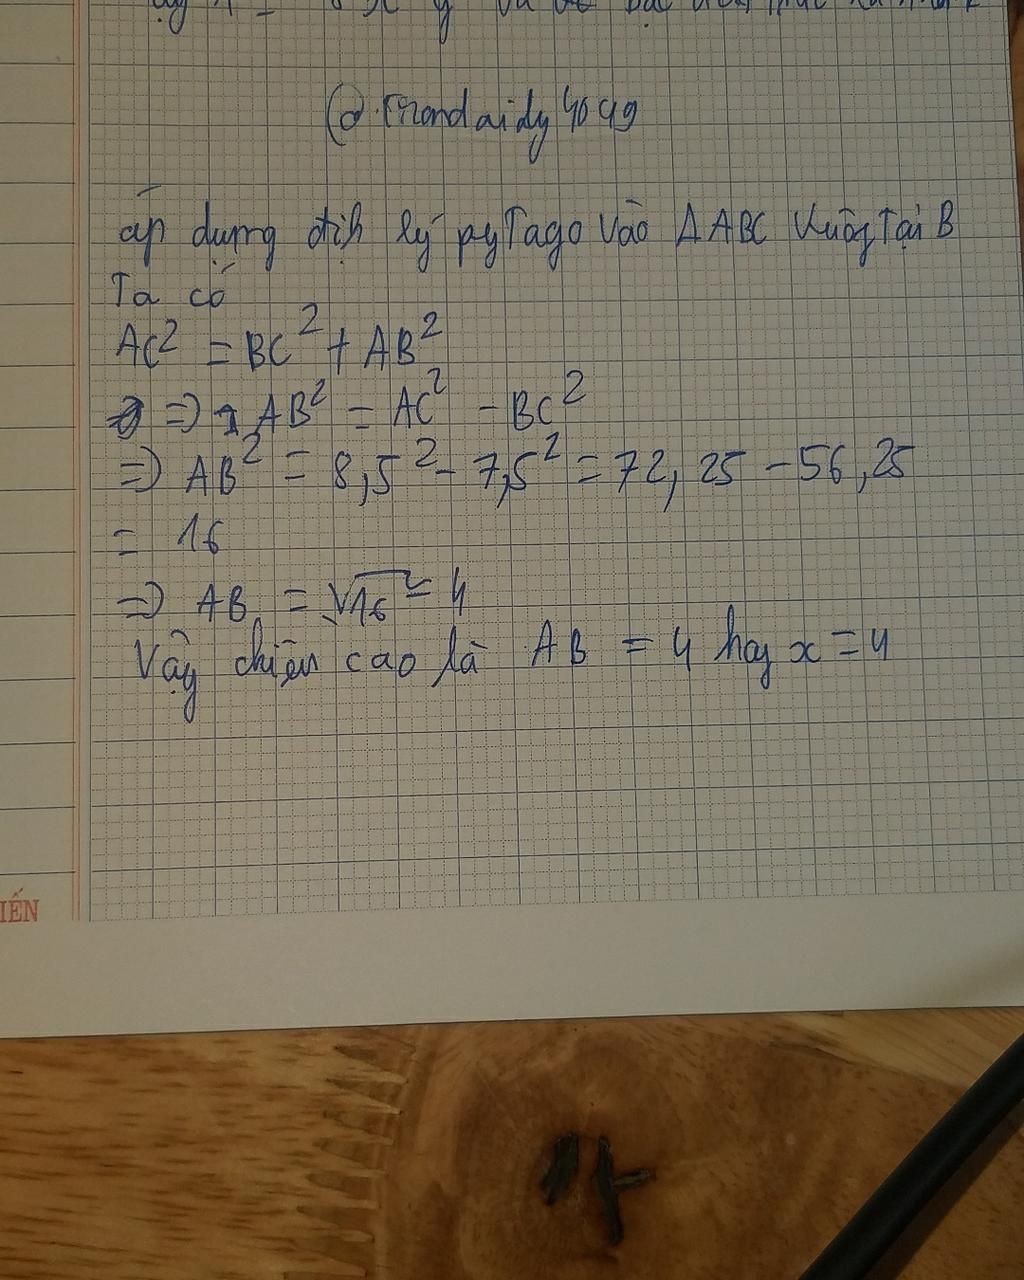 @.Trandaidy4049
áp dụng định lý pyTago vào Δ ABC vuông Tại B
Ta có
AC² = BC² + AB²
=> AB² = AC² - BC²
=> AB² = 8,5² - 7,5² = 72,25 - 56,25
= 16
=> AB = √16 = 4
Vậy chiều cao là AB = 4 hay x = 4
IẾN